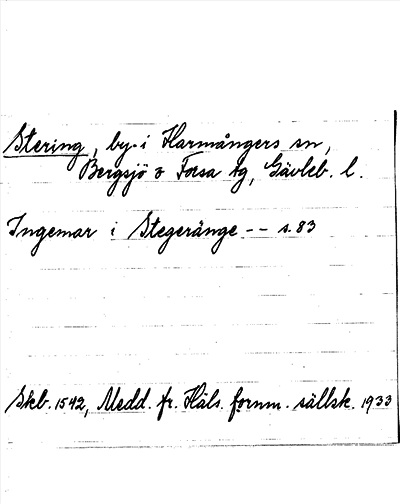 Stering, by i Harmångers sn,
Bergsjö o Forsa tg, Gävleb. l.
Ingemar i Stegeränge -- s. 83
Skb. 1542, Medd. fr. Häls. fornm. sällsk. 1933